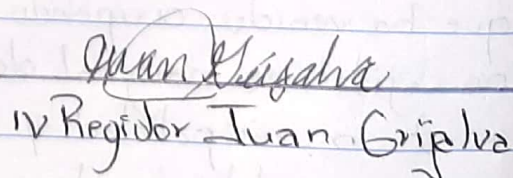 Juan Grijalva
IV Regidor Juan Grijalva